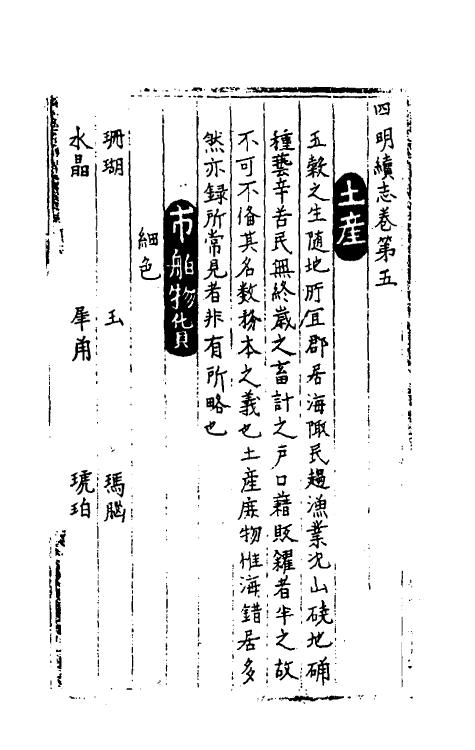 四明續志卷第五
土産
五穀之生随地所宜郡居海陬民趨漁業况山磽地确
種藝辛苦民無終歲之畜計之戸口藉販糴者半之故
不可不俻其名数務本之義也土産庶物惟海錯居多
然亦録所常見者非有所略也
市舶物貨
細色
珊瑚 玉 瑪腦
水晶 犀角 琥珀